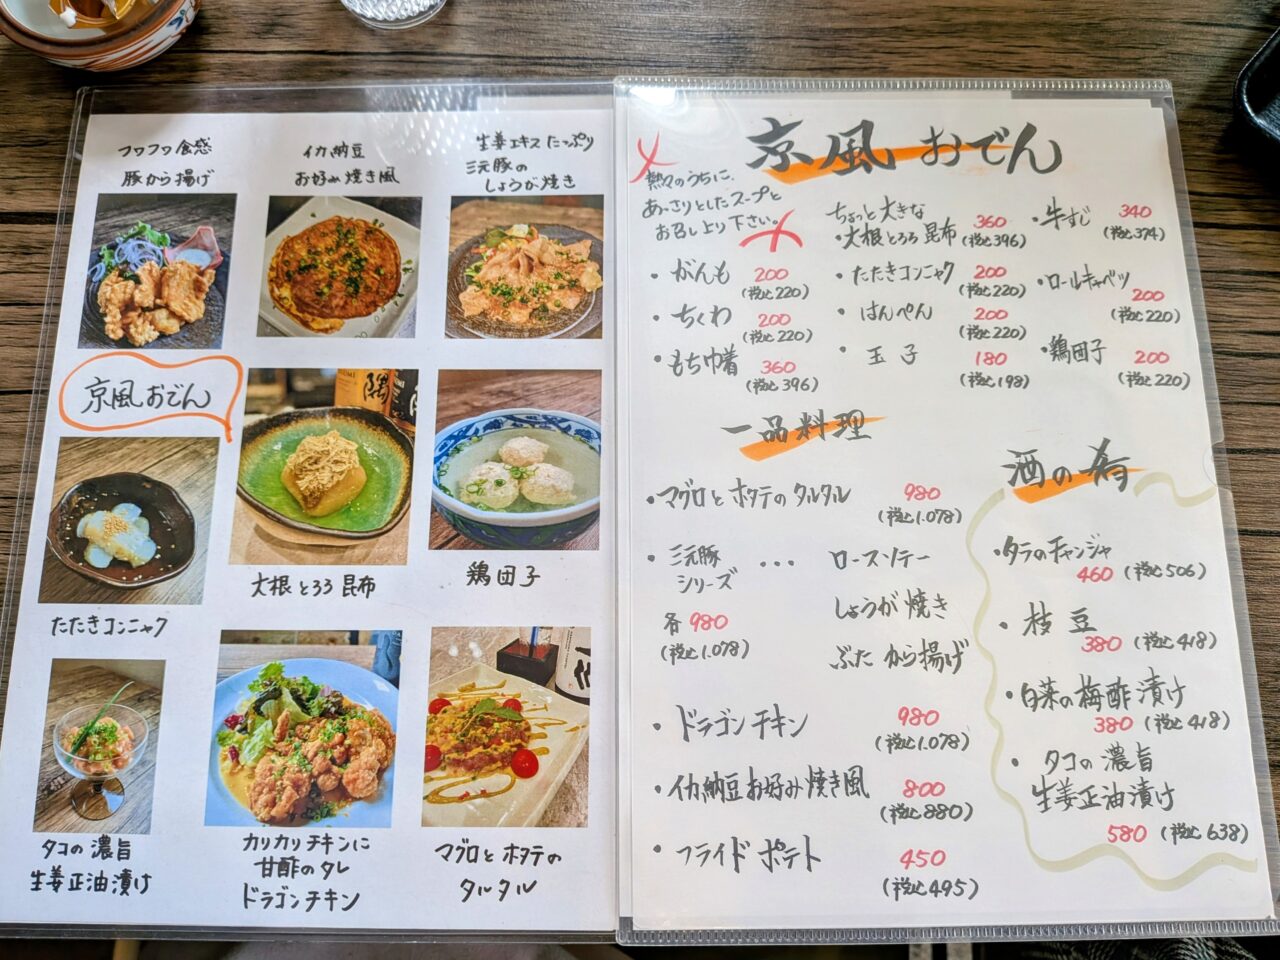 フワフワ食感
豚から揚げ
イカ納豆
お好み焼き風
生姜エキスたっぷり
三元豚の
しょうが焼き
京風おでん
たたきコンニャク
大根とろろ昆布
鶏団子
タコの濃旨
生姜正油漬け
カリカリチキンに
甘酢のタレ
ドラゴンチキン
マグロとホタテの
タルタル
京風おでん
熱々のうちに、
あっさりとしたスープと
お召し上り下さい。
・がんも 200
(税込220)
・ちくわ 200
(税込220)
・もち巾着 360
(税込396)
ちょっと大きな
・大根とろろ昆布 360
(税込396)
・たたきコンニャク 200
(税込220)
・はんぺん 200
(税込220)
・玉子 180
(税込198)
・牛すじ 340
(税込374)
・ロールキャベツ
200
(税込220)
・鶏団子 200
(税込220)
一品料理
・マグロとホタテのタルタル 980
(税込1.078)
・三元豚
シリーズ ・・・ ロースソテー
しょうが焼き
ぶたから揚げ
各980
(税込1.078)
・ドラゴンチキン 980
(税込1.078)
・イカ納豆お好み焼き風 800
(税込880)
・フライドポテト 450
(税込495)
酒の肴
・タラのチャンジャ
460 (税込506)
・枝豆
380 (税込418)
・白菜の梅酢漬け
380 (税込418)
・タコの濃旨
生姜正油漬け
580 (税込638)